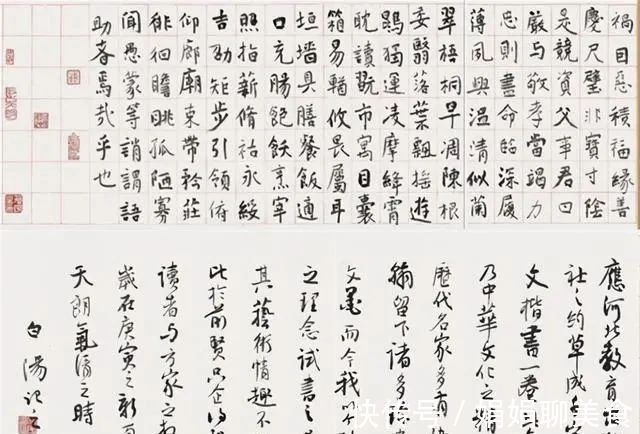 祸因惡積福緣善
慶尺璧非寶寸陰
是競資父事君曰
嚴与敬孝當竭力
忠則盡命臨深履
薄夙興溫凊似蘭
翠梧桐早凋陳根
委翳落葉飄搖遊
鵾獨運凌摩絳霄
耽讀翫市寓目囊
箱易輶攸畏屬耳
垣墻具膳餐飯適
口充腸飽飫烹宰
照指薪脩祜永綏
吉劭矩步引領俯
仰廊廟束帶矜莊
徘徊瞻眺孤陋寡
聞愚蒙等誚謂語
助者焉哉乎也
應河北教育
社之約草成
文楷書一卷
乃中華文化之
歷代名家多有
留下諸多
文墨而今我
之理念試書之
其藝術情趣不
此於前賢只企
讀者与方家之
歲在庚寅之新
天朗氣清之時
白陽記之
快传号／娟娟聊美食